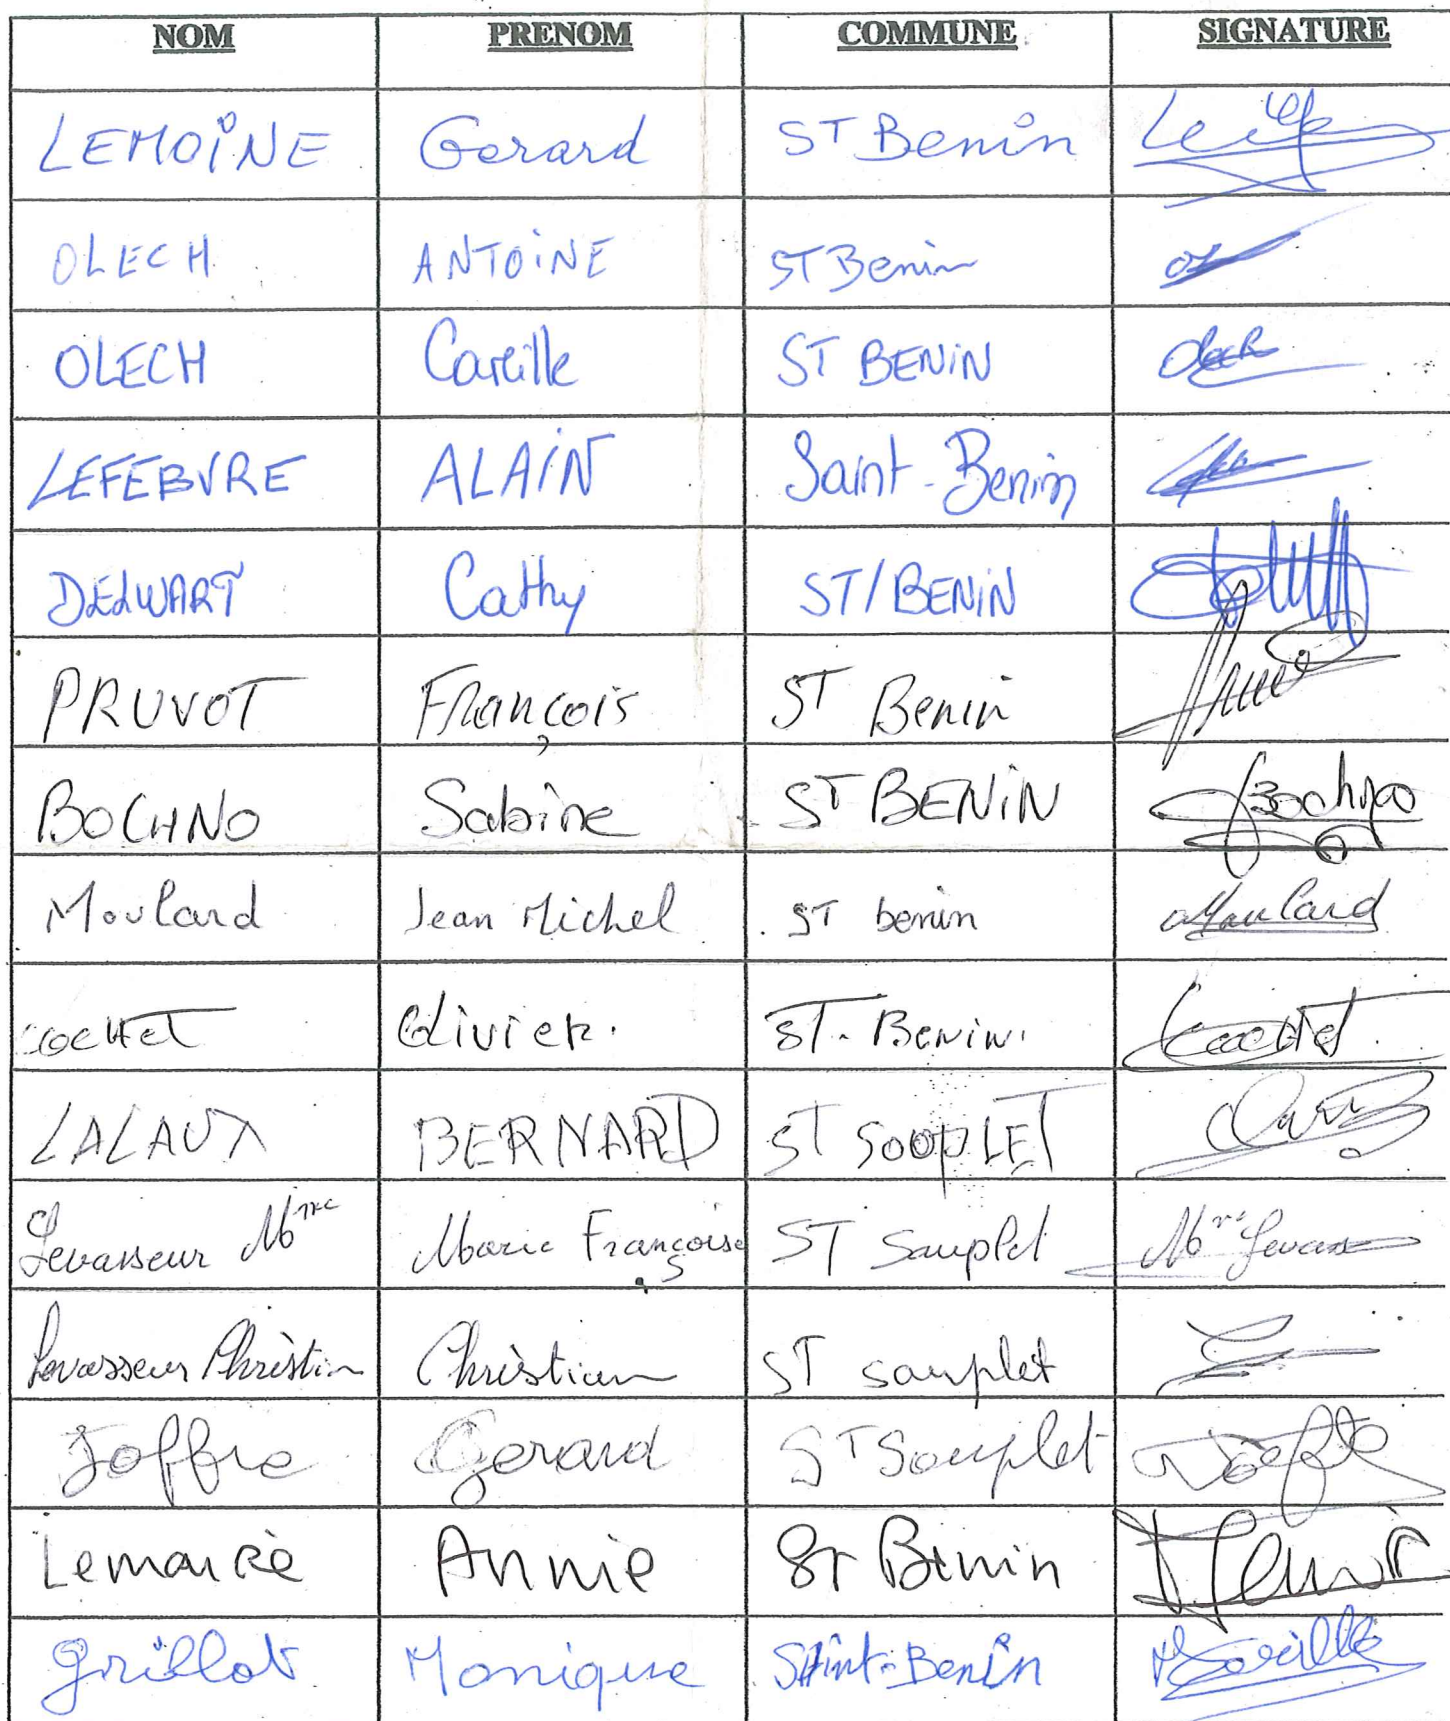 NOM PRENOM COMMUNE SIGNATURE
LEMOINE Gerard ST Benin
OLECH ANTOINE ST Benin
OLECH ST BENIN
LEFEBVRE ALAIN Saint-Benin
DELWART Cathy ST/BENIN
PRUVOT François ST Benin
BOCHNO Sabine ST BENIN Bochno
Moulard Jean Michel ST benin Moulard
cochet Olivier. ST. Benin. Cochet
LALAUX BERNARD ST SOUPLET
Levasseur Mme Marie Françoise ST Souplet Mme Levass
Levasseur Christian Christian ST souplet
Joffre Gerard ST Souplet
Lemaire Annie ST Benin
Grillot Monique Saint-Benin